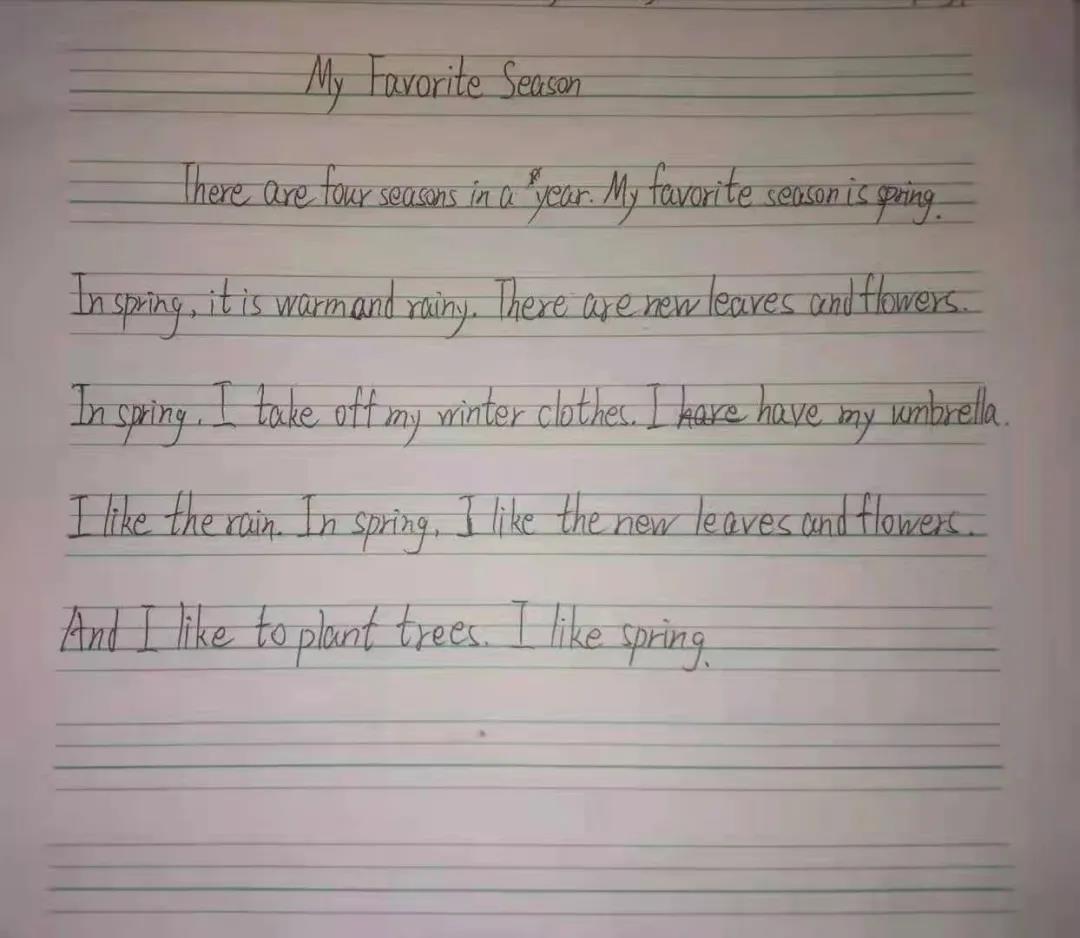 My Favorite Season
There are four seasons in a year. My favorite season is spring.
In spring, it is warm and rainy. There are new leaves and flowers.
In spring, I take off my winter clothes. I have have my umbrella.
I like the rain. In spring, I like the new leaves and flowers.
And I like to plant trees. I like spring.